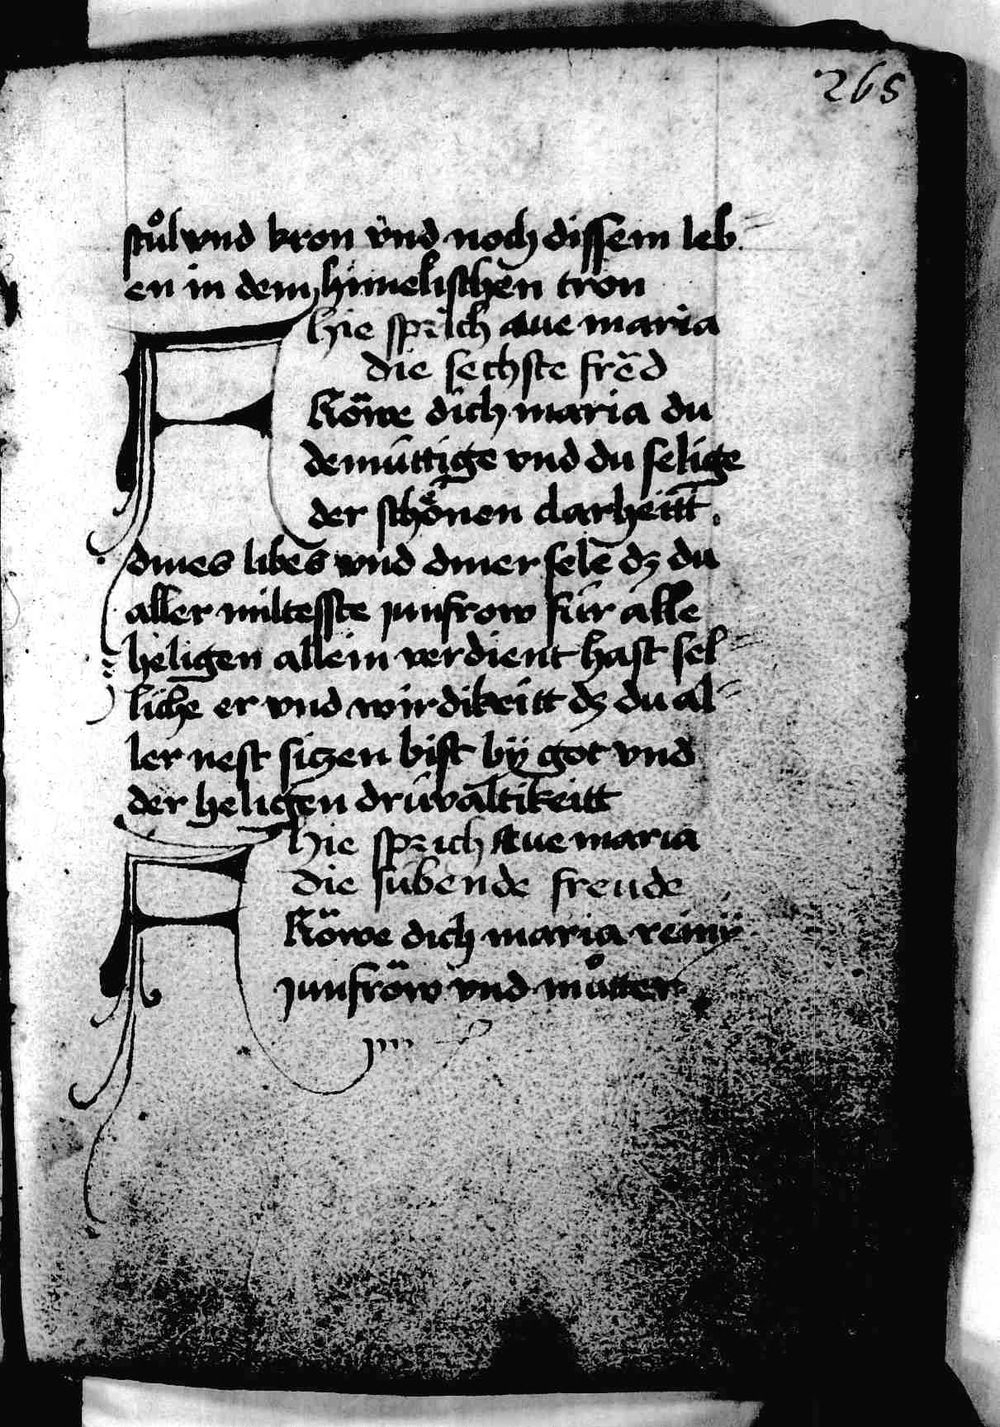 265
stůl vnd kron vnd noch dissem leb-
en in dem himelischen tron
hie sprich aue maria
die sechste frẽd
FRöwe dich maria du
demüttige vnd du selige
der schönen clarheitt.
dines libes vnd diner sele dz du
aller miltesste junfrow für alle
heligen allein verdient hast sel-
liche er vnd wirdikeitt dz du al-
ler nest sitzen bist bÿ got vnd
der heligen drüvaltikeitt
hie sprich Aue maria
die sübende freude
FRöwe dich maria reinÿ
junfröw vnd můtter